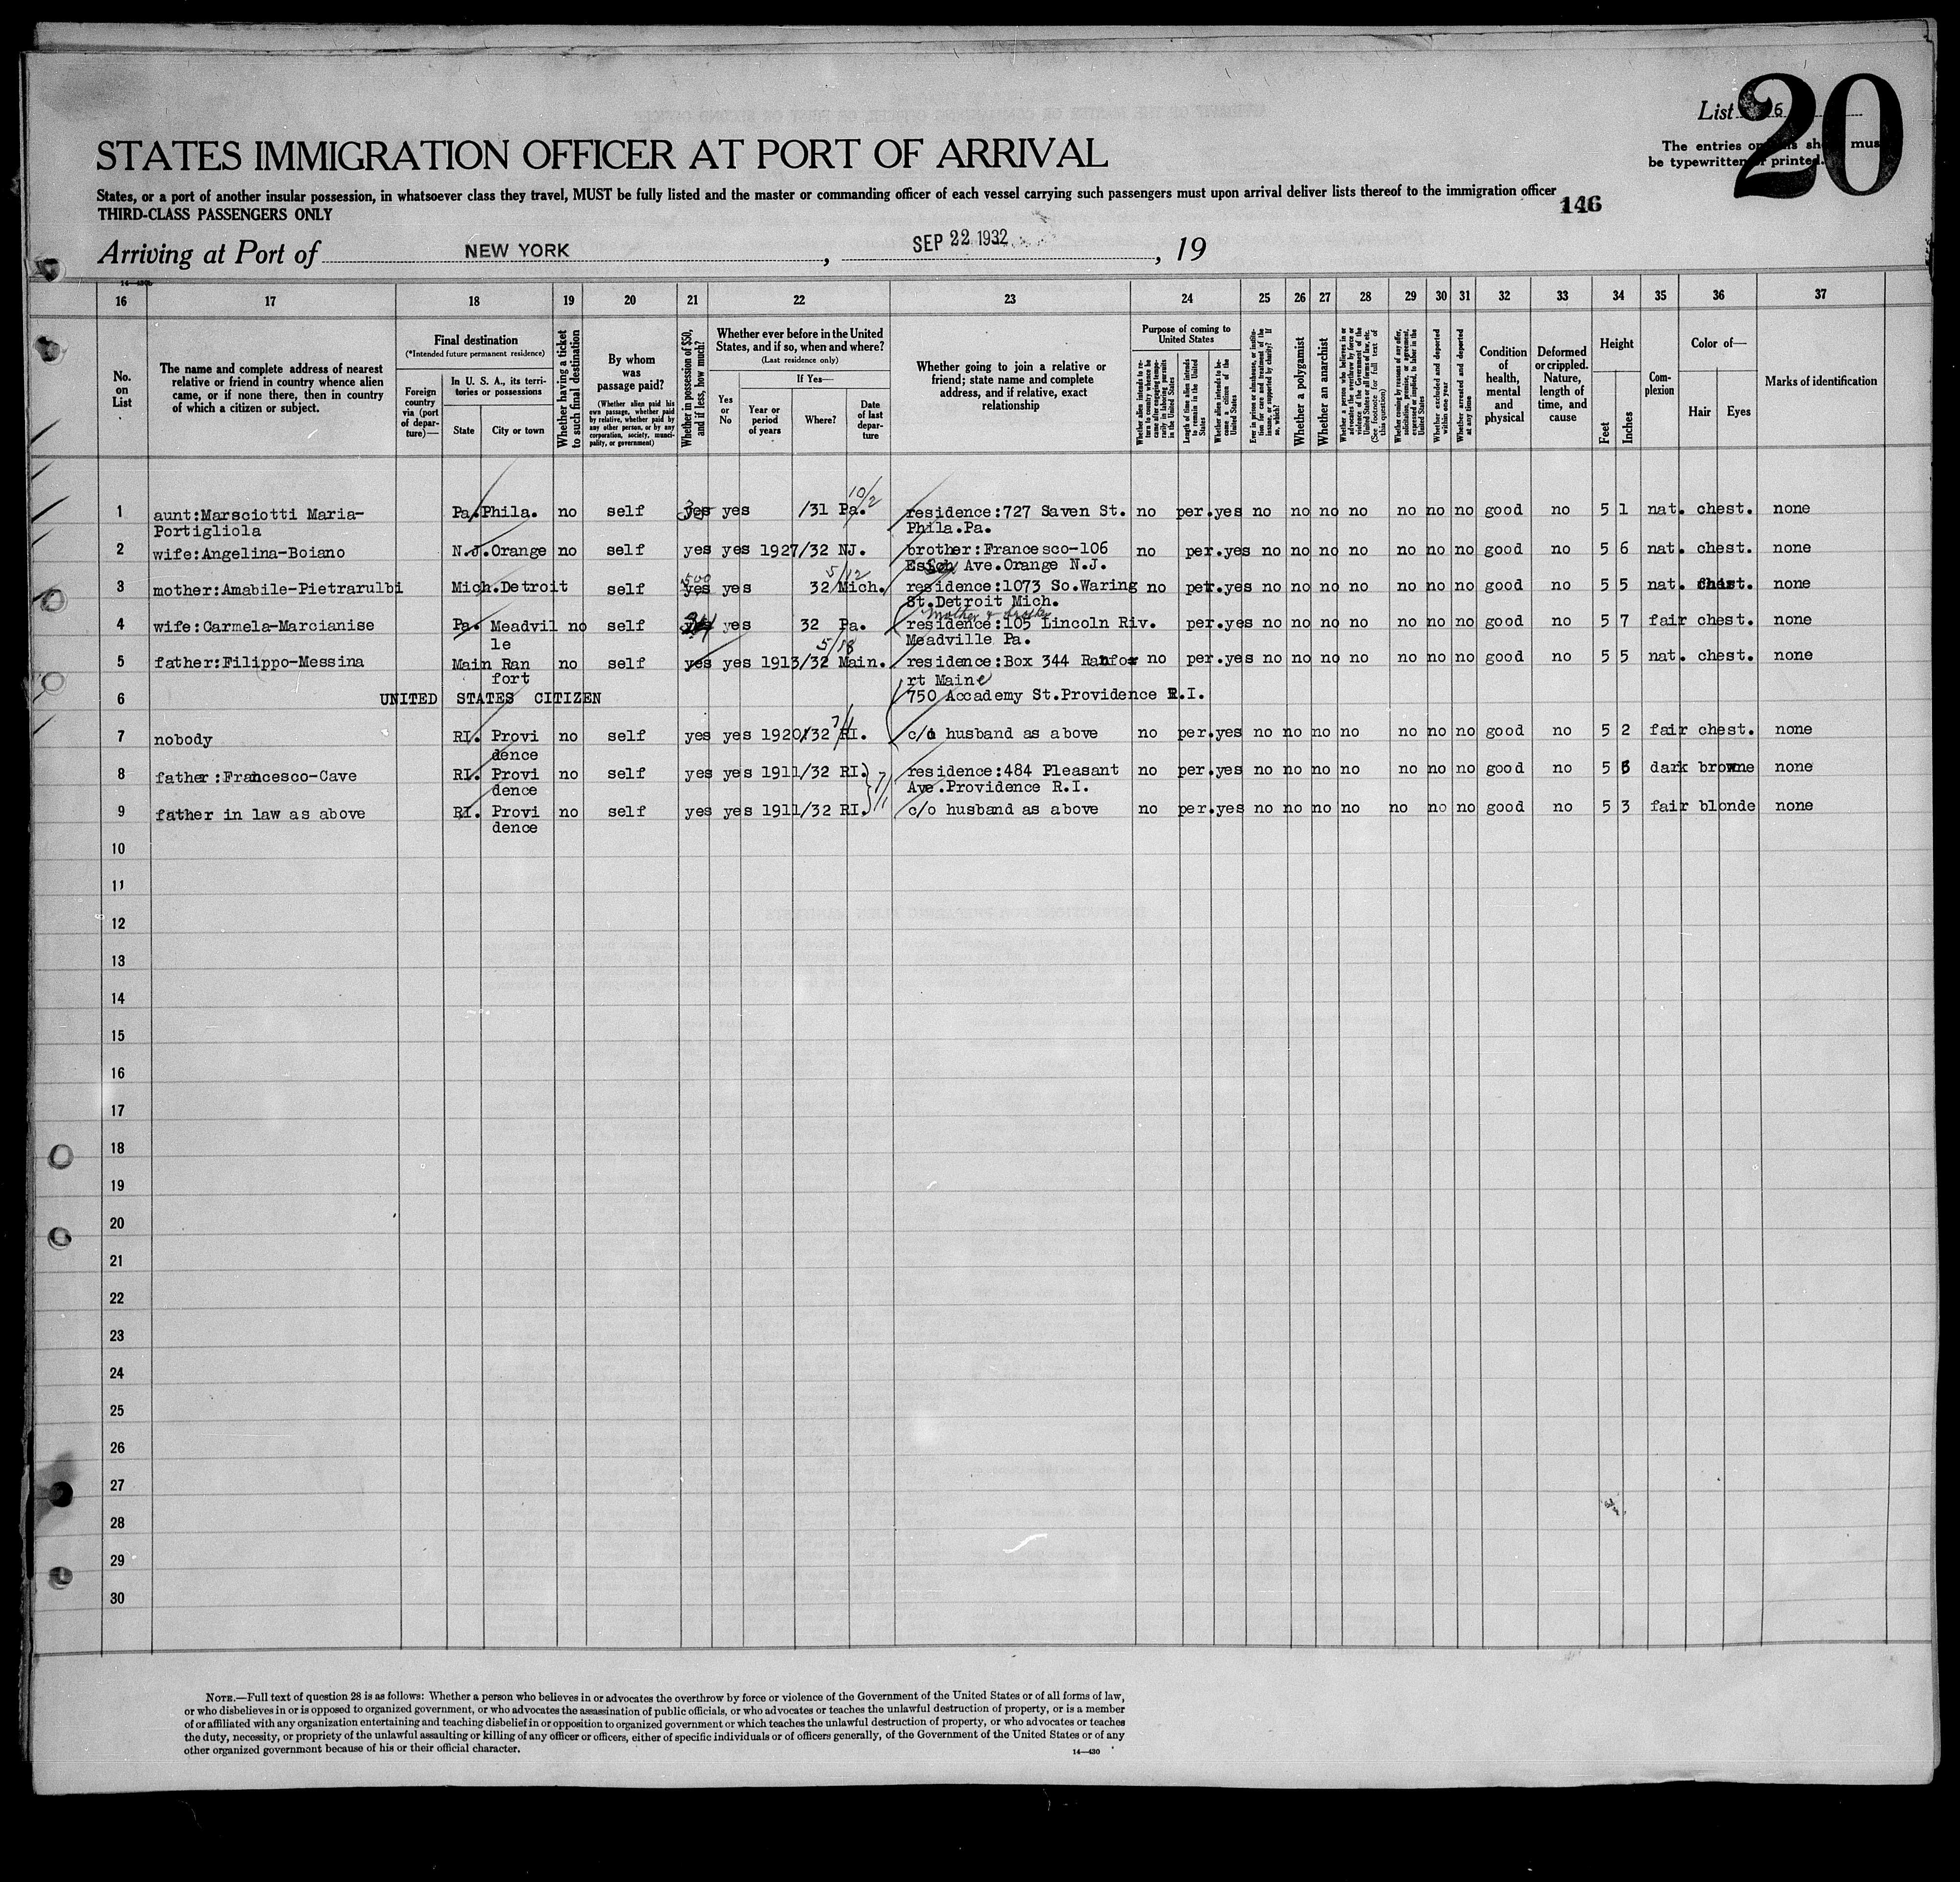 List 6
20
The entries on this sheet must
be typewritten or printed.
STATES IMMIGRATION OFFICER AT PORT OF ARRIVAL
States, or a port of another insular possession, in whatsoever class they travel, MUST be fully listed and the master or commanding officer of each vessel carrying such passengers must upon arrival deliver lists thereof to the immigration officer
THIRD-CLASS PASSENGERS ONLY
146
Arriving at Port of NEW YORK, SEP 22 1932, 19
16 17 18 19 20 21 22 23 24 25 26 27 28 29 30 31 32 33 34 35 36 37
No. on List
The name and complete address of nearest relative or friend in country whence alien came, or if none there, then in country of which a citizen or subject.
Final destination
(*Intended future permanent residence)
Foreign country via (port of departure)—
In U. S. A., its territories or possessions
State
City or town
Whether having a ticket to such final destination
By whom was passage paid?
(Whether alien paid his own passage, whether paid by relative, whether paid by any other person, or by any corporation, society, municipality, or government)
Whether in possession of $50, and if less, how much?
Whether ever before in the United States, and if so, when and where?
(Last residence only)
If Yes—
Yes or No
Year or period of years
Where?
Date of last departure
Whether going to join a relative or friend; state name and complete address, and if relative, exact relationship
Purpose of coming to United States
Whether alien intends to return to country whence he came after engaging temporarily in laboring pursuits in the United States
Length of time alien intends to remain in the United States
Whether alien intends to become a citizen of the United States
Ever in prison or almshouse, or institution for care and treatment of the insane, or supported by charity? If so, which?
Whether a polygamist
Whether an anarchist
Whether a person who believes in or advocates the overthrow by force or violence of the Government of the United States or all forms of law, etc. (See footnote for full text of this question)
Whether coming by reasons of any offer, solicitation, promise, or agreement, expressed or implied, to labor in the United States
Whether excluded and deported within one year
Whether arrested and deported at any time
Condition of health, mental and physical
Deformed or crippled. Nature, length of time, and cause
Height
Feet
Inches
Complexion
Color of—
Hair
Eyes
Marks of identification
10/2
1 aunt:Marsciotti Maria- Pa. Phila. no self yes yes /31 Pa. residence:727 Saven St. no per. yes no no no no no no no good no 5 1 nat. chest. none
Portigliola Phila.Pa.
2 wife:Angelina-Boiano N.J. Orange no self yes yes 1927/32 NJ. brother:Francesco-106 no per. yes no no no no no no no good no 5 6 nat. chest. none
Ave.Orange N.J.
500 5/12
3 mother:Amabile-Pietrarulbi Mich.Detroit self yes yes 32 Mich. residence:1073 So.Waring no per. yes no no no no no no no good no 5 5 nat. chest. none
St.Detroit Mich.
Mother &
4 wife:Carmela-Marcianise Pa. Meadvil no self yes 32 Pa. residence:105 Lincoln Riv. per. yes no no no no no no no good no 5 7 fair chest. none
le 5/18 Meadville Pa.
5 father:Filippo-Messina Main Ran no self yes yes 1913/32 Main. residence:Box 344 Ranfo no per. yes no no no no no no no good no 5 5 nat. chest. none
fort rt Maine
6 UNITED STATES CITIZEN 750 Accademy St.Providence R.I.
7/1
7 nobody RI. Provi no self yes yes 1920/32 RI. c/o husband as above no per. yes no no no no no no no good no 5 2 fair chest. none
dence
8 father:Francesco-Cave RI. Provi no self yes yes 1911/32 RI. residence:484 Pleasant no per. yes no no no no no no no good no 5 dark browne none
dence 7/1 Ave.Providence R.I.
9 father in law as above RI. Provi no self yes yes 1911/32 RI. c/o husband as above no per. yes no no no no no no no good no 5 3 fair blonde none
dence
10
11
12
13
14
15
16
17
18
19
20
21
22
23
24
25
26
27
28
29
30
NOTE.—Full text of question 28 is as follows: Whether a person who believes in or advocates the overthrow by force or violence of the Government of the United States or of all forms of law,
or who disbelieves in or is opposed to organized government, or who advocates the assassination of public officials, or who advocates or teaches the unlawful destruction of property, or is a member
of or affiliated with any organization entertaining and teaching disbelief in or opposition to organized government or which teaches the unlawful destruction of property, or who advocates or teaches
the duty, necessity, or propriety of the unlawful assaulting or killing of any officer or officers, either of specific individuals or of officers generally, of the Government of the United States or of any
other organized government because of his or their official character.
14—430